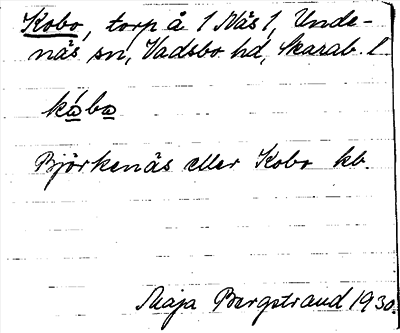 Kobo, torp å 1 Nås 1, Unde-
näs sn, Vadsbo hd, Skarab. l
kába
Björkenäs eller Kobo kb.
Maja Bergstrand 1930.